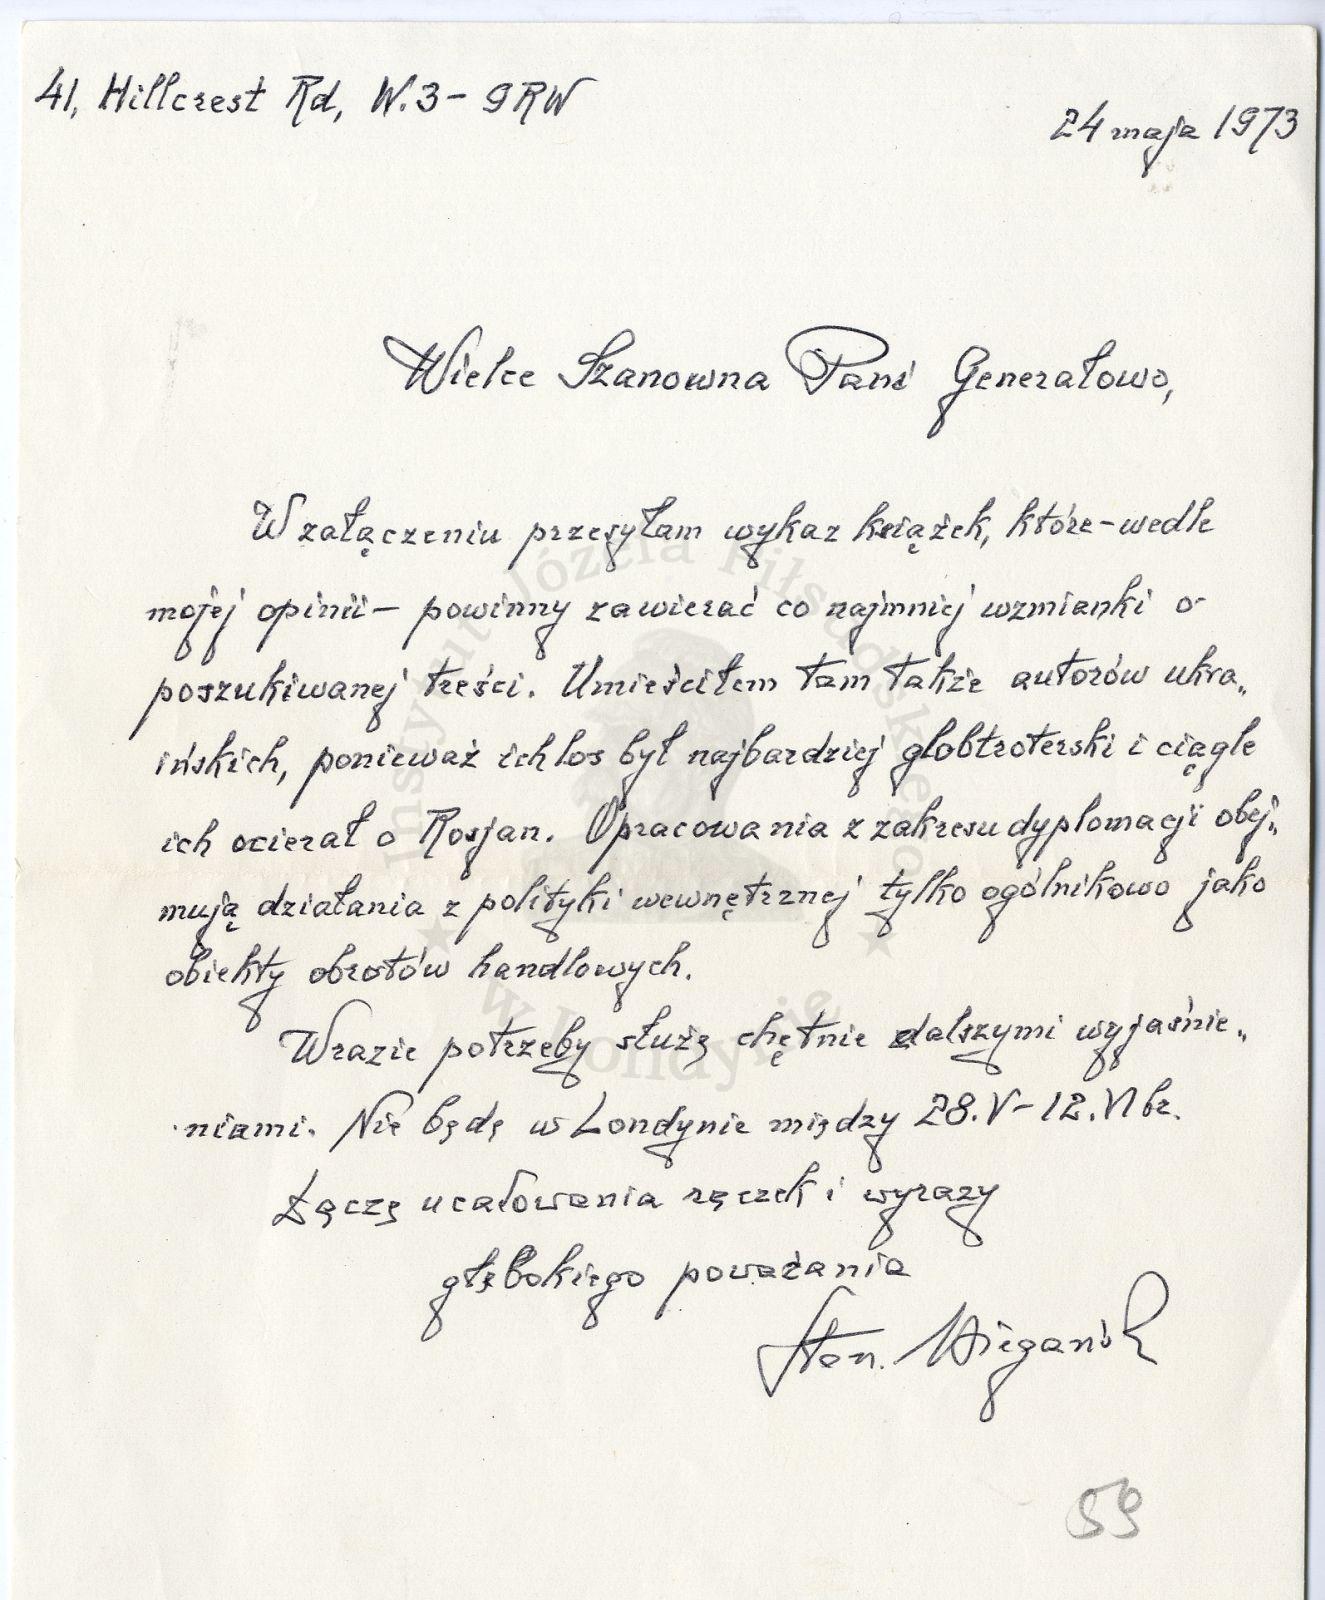 41, Hillcrest Rd, W.3 - 9RW
24 maja 1973
Wielce Szanowna Pani Generałowo,
W załączeniu przesyłam wykaz książek, które - wedle
mojej opinii - powinny zawierać co najmniej wzmianki o
poszukiwanej treści. Umieściłem tam także autorów ukra„
ińskich, ponieważ ich los był najbardziej globtroterski i ciągle
ich ocierał o Rosjan. Opracowania z zakresu dyplomacji obej„
mują działania z polityki wewnętrznej tylko ogólnikowo jako
obiekty obrotów handlowych.
W razie potrzeby służę chętnie dalszymi wyjaśnie„
niami. Nie będę w Londynie między 28.V - 12.VI br.
Łączę ucałowania rączek i wyrazy
głębokiego poważania
Stan.
59
Instytut Józefa Piłsudskiego
w Londynie